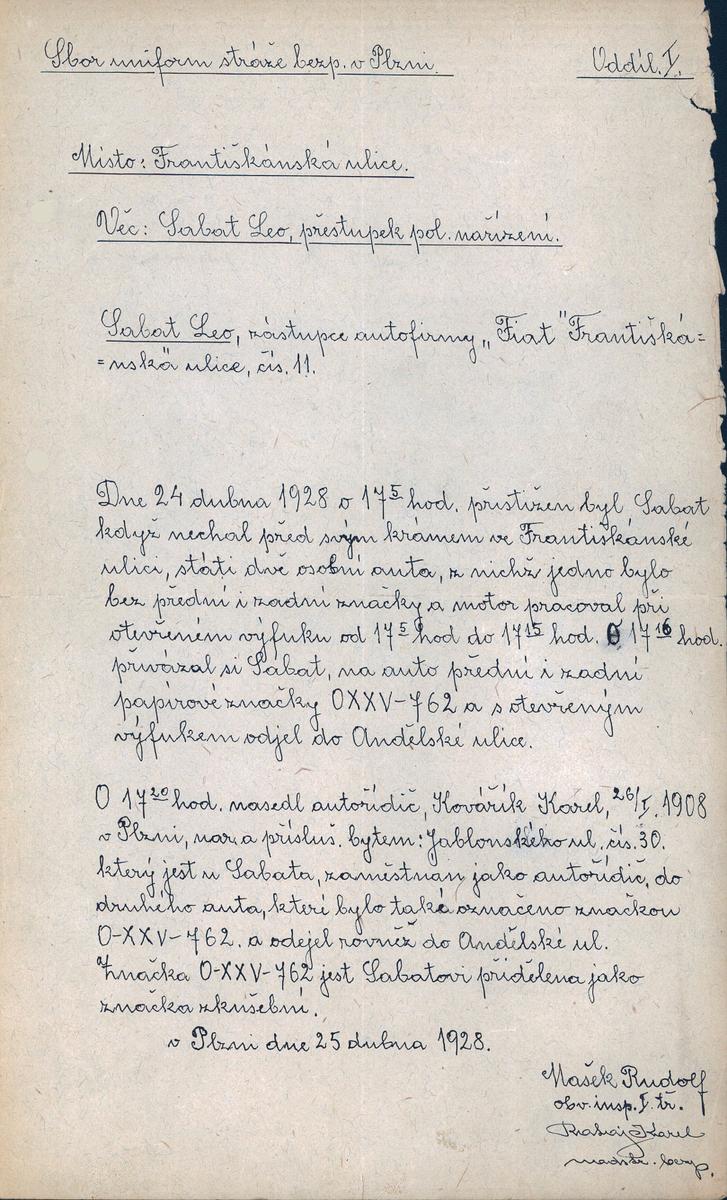 Sbor uniform stráže bezp. v Plzni. Oddíl. I.
Místo: Františkánská ulice.
Věc: Sabat Leo, přestupek pol. nařízení.
Sabat Leo, zástupce autofirmy „Fiat" Františká=
=nská ulice, čís. 11.
Dne 24 dubna 1928 o 17⁵ hod. přistižen byl Sabat
když nechal před svým krámem ve Františkánské
ulici, státi dvě osobní auta, z nichž jedno bylo
bez přední i zadní značky a motor pracoval při
otevřeném výfuku od 17⁵ hod do 17¹⁵ hod. O 17¹⁶ hod.
přivázal si Sabat, na auto přední i zadní
papírové značky OXXV-762 a s otevřeným
výfukem odjel do Andělské ulice.
O 17²⁰ hod. nasedl autořidič, Kovářík Karel, 26/I. 1908
v Plzni, nar. a přísluš. bytem: Jablonského ul. čís. 30.
který jest u Sabata, zaměstnán jako autořidič, do
druhého auta, které bylo také označeno značkou
O-XXV-762. a odejel rovněž do Andělské ul.
Značka O-XXV-762 jest Sabatovi přidělena jako
značka zkušební.
v Plzni dne 25 dubna 1928.
Mašek Rudolf
obv. insp. I. tř.
Karel
nadstr. bezp.